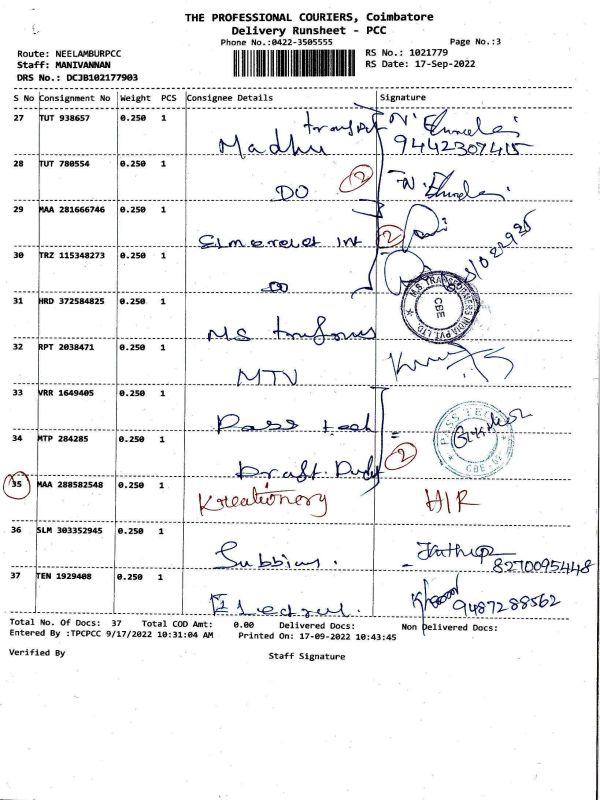 THE PROFESSIONAL COURIERS, Coimbatore
Delivery Runsheet - PCC
Phone No.:0422-3505555
Page No.:3
Route: NEELAMBURPCC
RS No.: 1021779
Staff: MANIVANNAN
RS Date: 17-Sep-2022
DRS No.: DCJB102177903
S No Consignment No Weight PCS Consignee Details Signature
27 TUT 938657 0.250 1 Madhu
9442307415
28 TUT 780554 0.250 1 DO 2
29 MAA 281666746 0.250 1 2
30 TRZ 115348273 0.250 1 DO
31 HRD 372584825 0.250 1 MS
M.S TRANSFORMERS INDIA PVT.LTD CBE
32 RPT 2038471 0.250 1 MTV
33 VRR 1649405 0.250 1 Pass tech
PASS TECH
34 MTP 284285 0.250 1 Draft 2
35 MAA 288582548 0.250 1 Kreationery H/R
36 SLM 303352945 0.250 1 Subbias.
8270095448
37 TEN 1929408 0.250 1
9487288562
Total No. Of Docs: 37 Total COD Amt: 0.00 Delivered Docs: Non Delivered Docs:
Entered By :TPCPCC 9/17/2022 10:31:04 AM Printed On: 17-09-2022 10:43:45
Verified By
Staff Signature